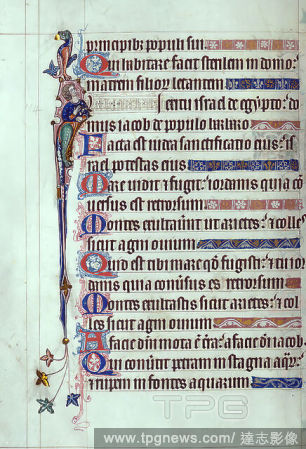 principibus populi sui.
Qui habitare facit sterilem in domo:
matrem filiorum letantem
In exitu israel de egypto: do
mus iacob de populo barbaro
Facta est iudea sanctificatio eius: is
rael potestas eius
Mare vidit et fugit: iordanis con
uersus est retrorsum
Montes exultauerunt ut arietes: et colles
sicut agni ouium
Quid est tibi mare quod fugisti: et tu ior
danis quia conuersus es retrorsum
Montes exultastis sicut arietes: et col
les sicut agni ouium
A facie domini mota est terra: a facie dei iacob
Qui conuertit petram in stagna aquarum:
et rupem in fontes aquarum
TPG
www.tpgnews.com / 達志影像